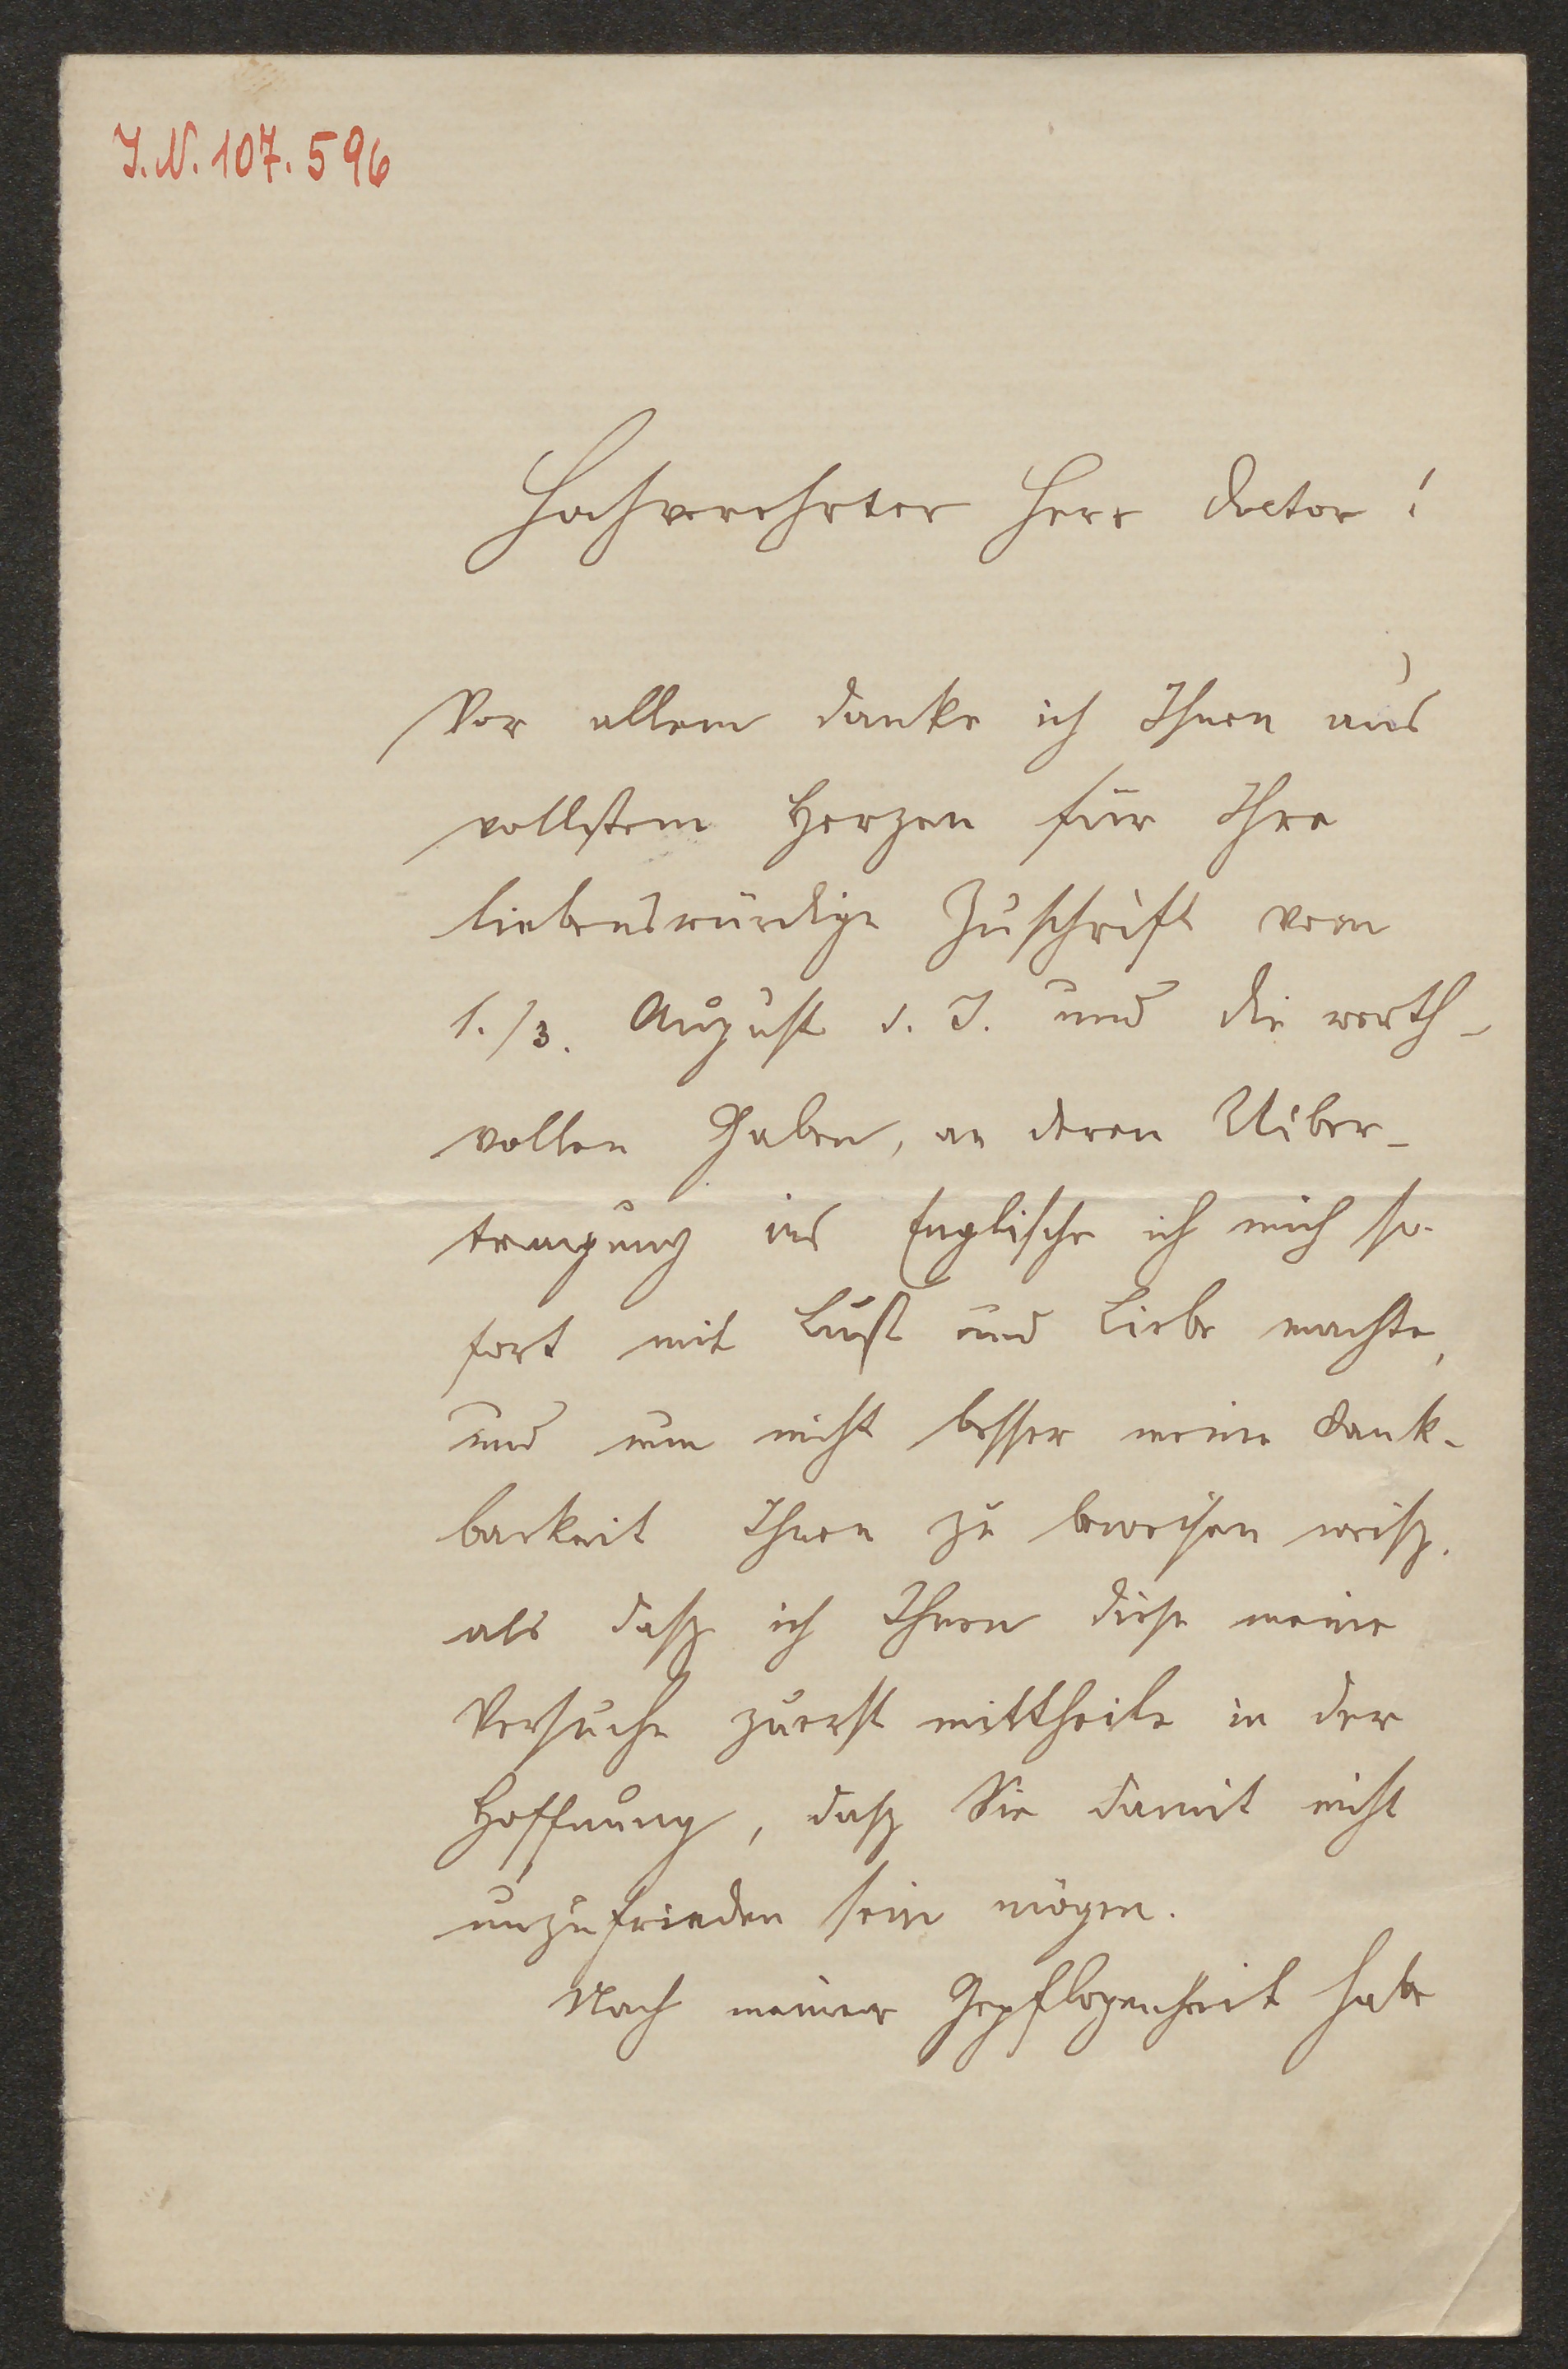 J.N. 107.596
Hochverehrter Herr Doctor!
Vor allem danke ich Ihnen aus
vollstem Herzen für Ihre
liebenswürdige Zuschrift vom
1./3. August d. J. und die werth-
vollen Gaben, an deren Uiber-
tragung ins Englische ich mich so-
fort mit Lust und Liebe machte,
und nun nicht besser meine Dank-
barkeit Ihnen zu beweisen weiß.
als daß ich Ihnen diese meine
Versuche zuerst mittheile in der
Hoffnung, daß Sie damit nicht
unzufrieden sein mögen.
Nach meiner Gepflogenheit habe